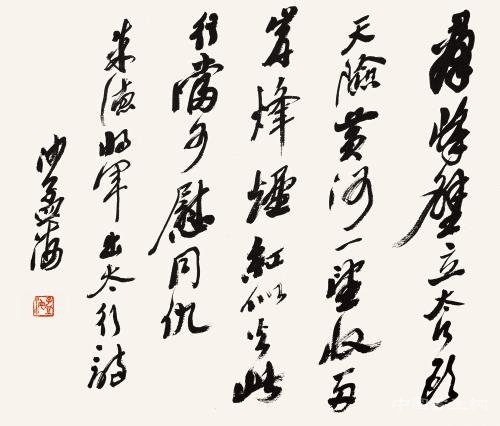 群峰壁立太行頭
天險黄河一望收兩
岸烽煙紅似火此
行當可慰同仇
朱德將軍出太行詩
沙孟海